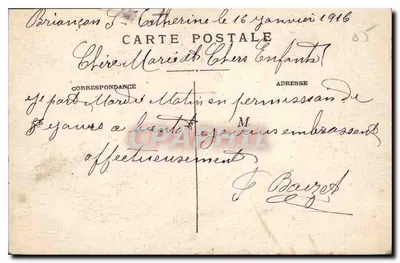 Briançon Ste Catherine le 16 Janvier 1916
CARTE POSTALE
Chère Marie et Chers Enfants
CORRESPONDANCE
ADRESSE
je part Mardi Matin en permission de
jours a bientot je vous embrassent
M
affectueusement
F Bar